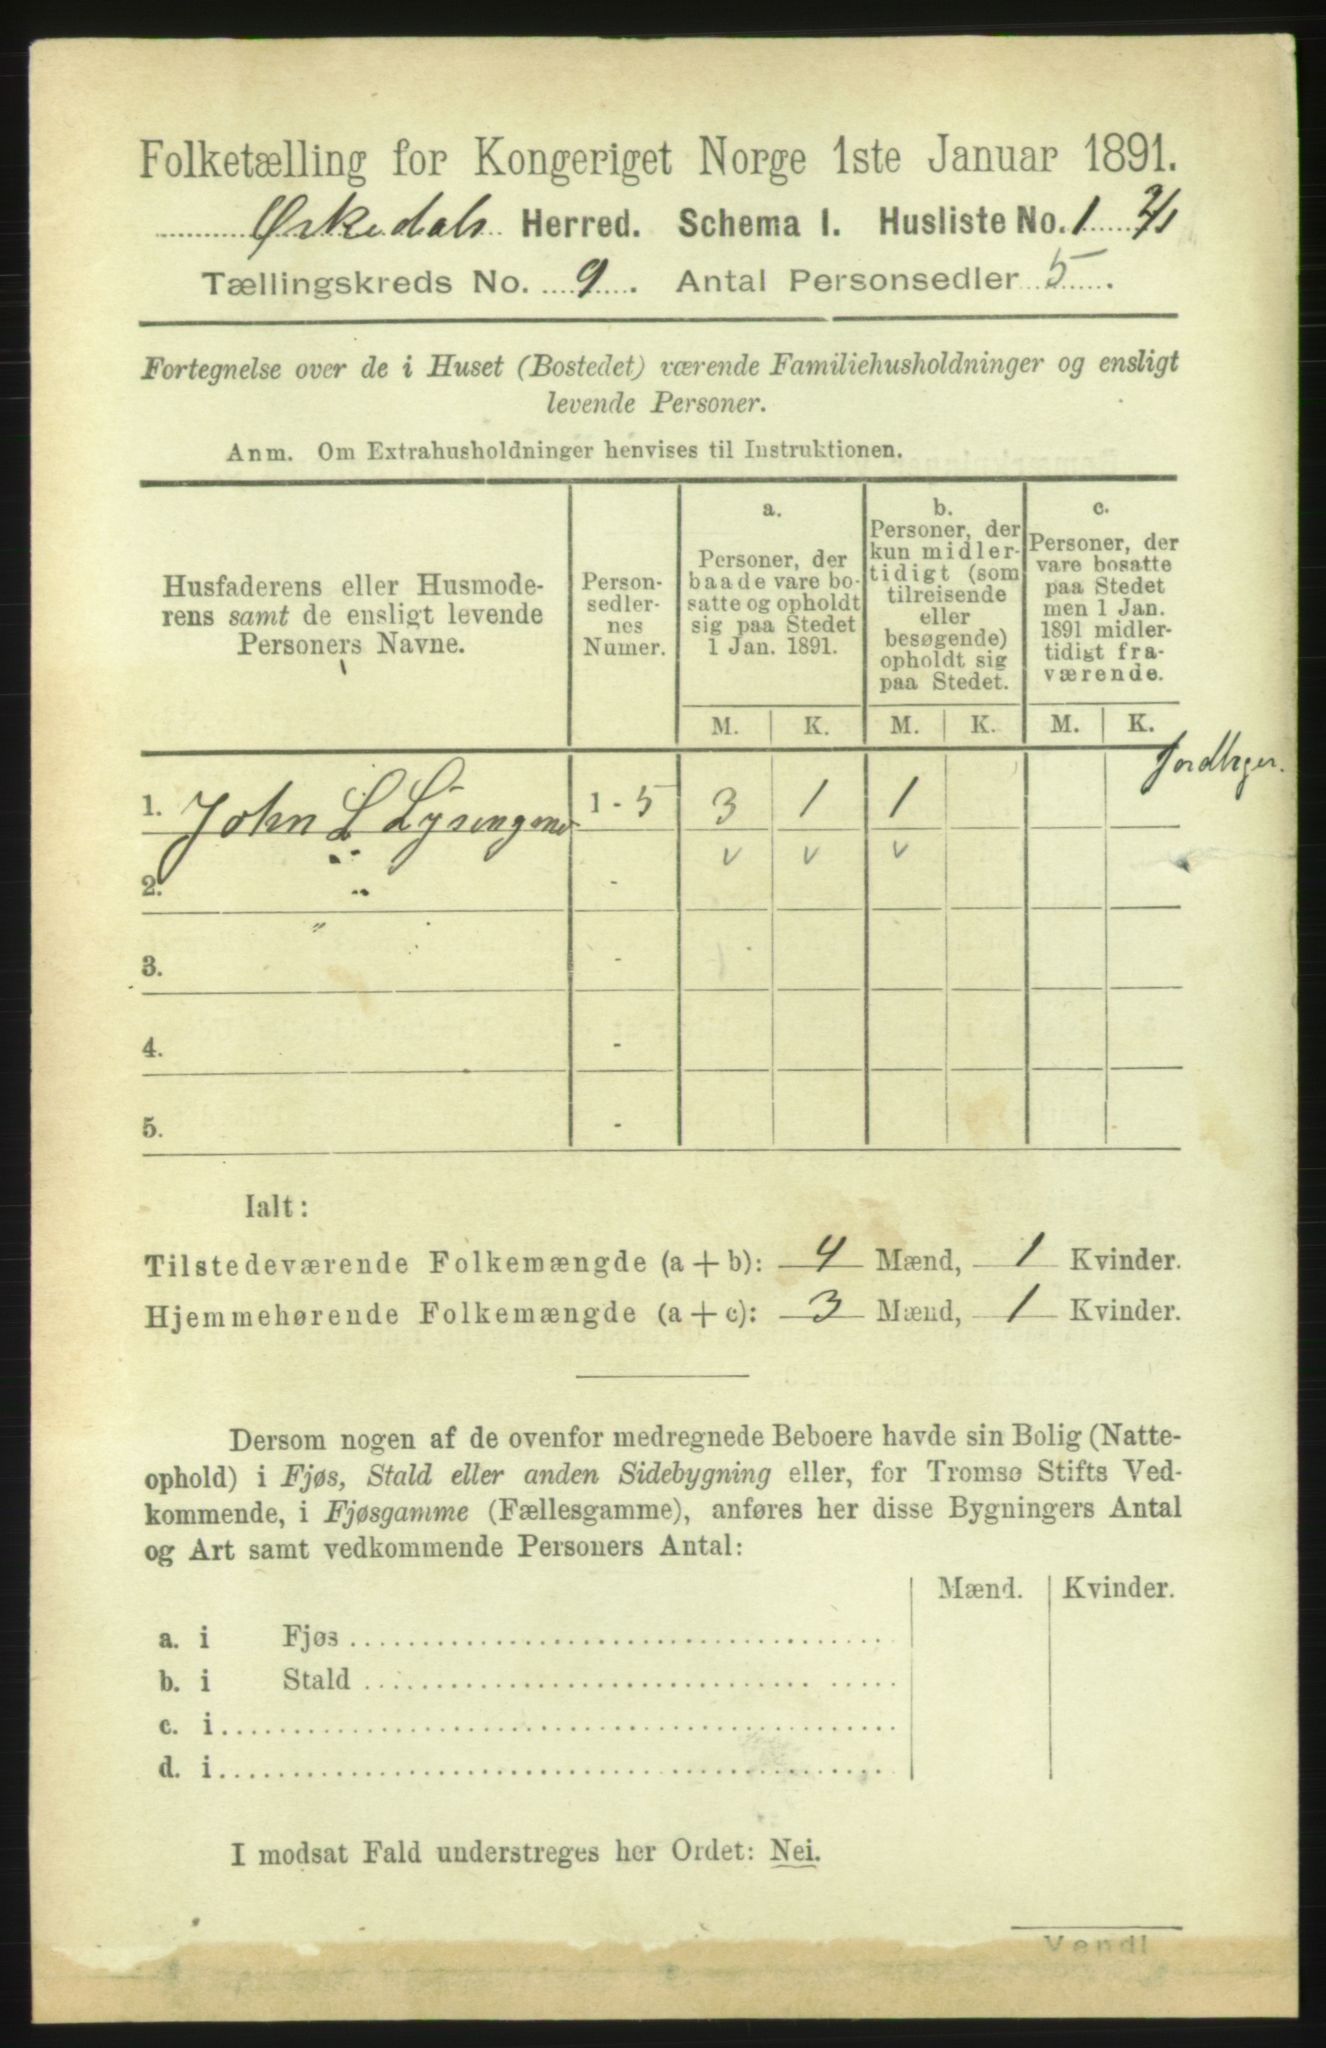 Folketælling for Kongeriget Norge 1ste Januar 1891.
Ørkedals Herred. Schema I. Husliste No. 1 2/1
Tællingskreds No. 9. Antal Personsedler 5.
Fortegnelse over de i Huset (Bostedet) værende Familiehusholdninger og ensligt
levende Personer.
Anm. Om Extrahusholdninger henvises til Instruktionen.
Husfaderens eller Husmode-
rens samt de ensligt levende
Personers Navne.
Person-
sedler-
nes
Numer.
a.
Personer, der
baade vare bo-
satte og opholdt
sig paa Stedet
1 Jan. 1891.
b.
Personer, der
kun midler-
tidigt (som
tilreisende
eller
besøgende)
opholdt sig
paa Stedet.
c.
Personer, der
vare bosatte
paa Stedet
men 1 Jan.
1891 midler-
tidigt fra-
værende.
M. K. M. K. M. K.
1. John L Lysengene 1 - 5 3 1 1
v v v
2. -
3. -
4. -
5. -
Ialt:
Tilstedeværende Folkemængde (a + b): 4 Mænd, 1 Kvinder.
Hjemmehørende Folkemængde (a + c): 3 Mænd, 1 Kvinder.
Dersom nogen af de ovenfor medregnede Beboere havde sin Bolig (Natte-
ophold) i Fjøs, Stald eller anden Sidebygning eller, for Tromsø Stifts Ved-
kommende, i Fjøsgamme (Fællesgamme), anføres her disse Bygningers Antal
og Art samt vedkommende Personers Antal:
Mænd. Kvinder.
a. i Fjøs
b. i Stald
c. i
d. i
I modsat Fald understreges her Ordet: Nei.
Vend!